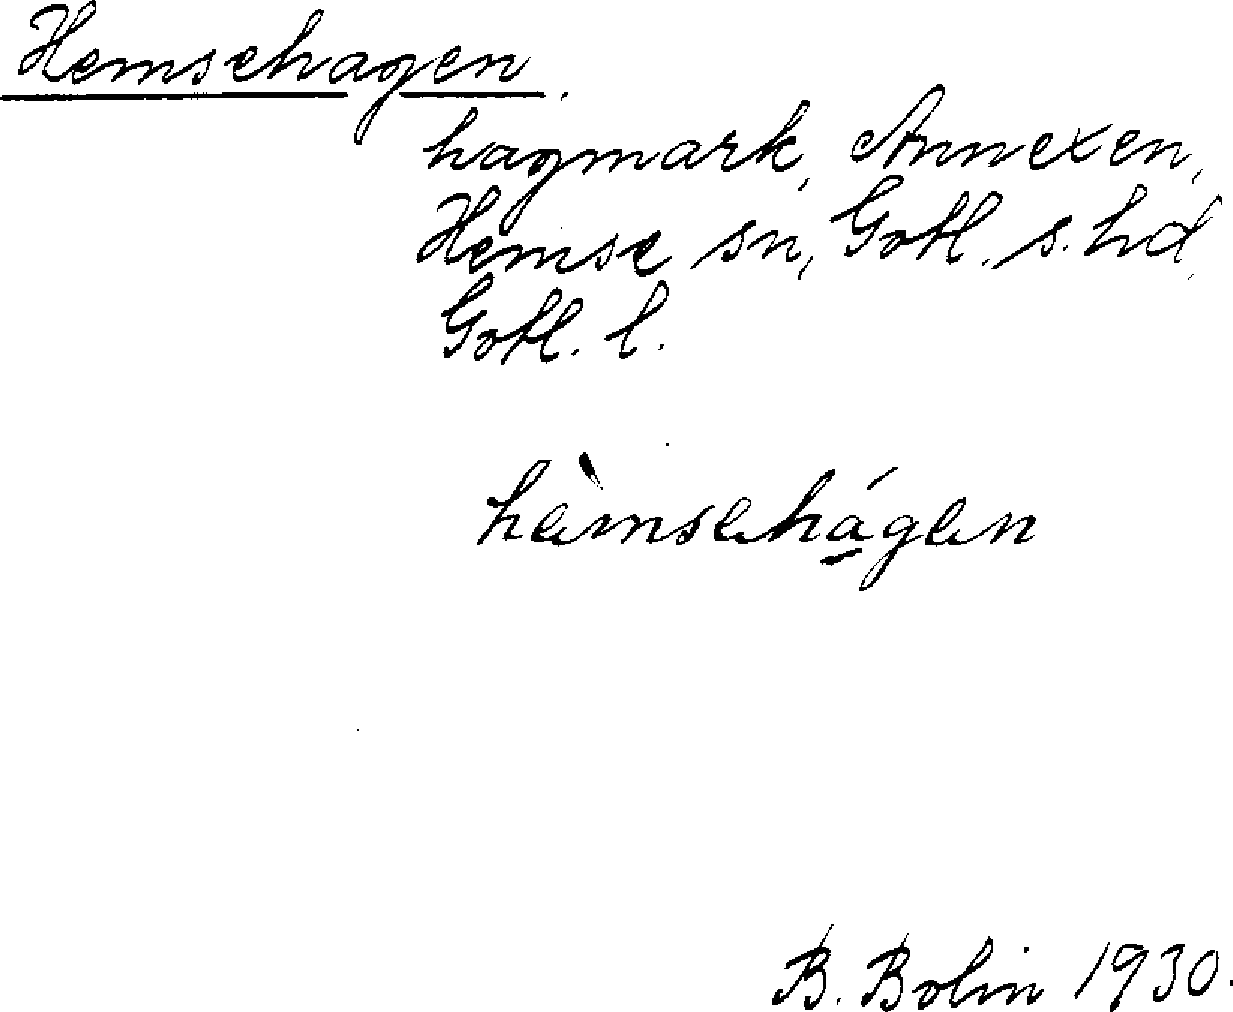 Hemsehagen.
hagmark, Annexen,
Hemse sn, Gotl. s. hd,
Gotl. l.
hèmsehágen
B. Bolin 1930.